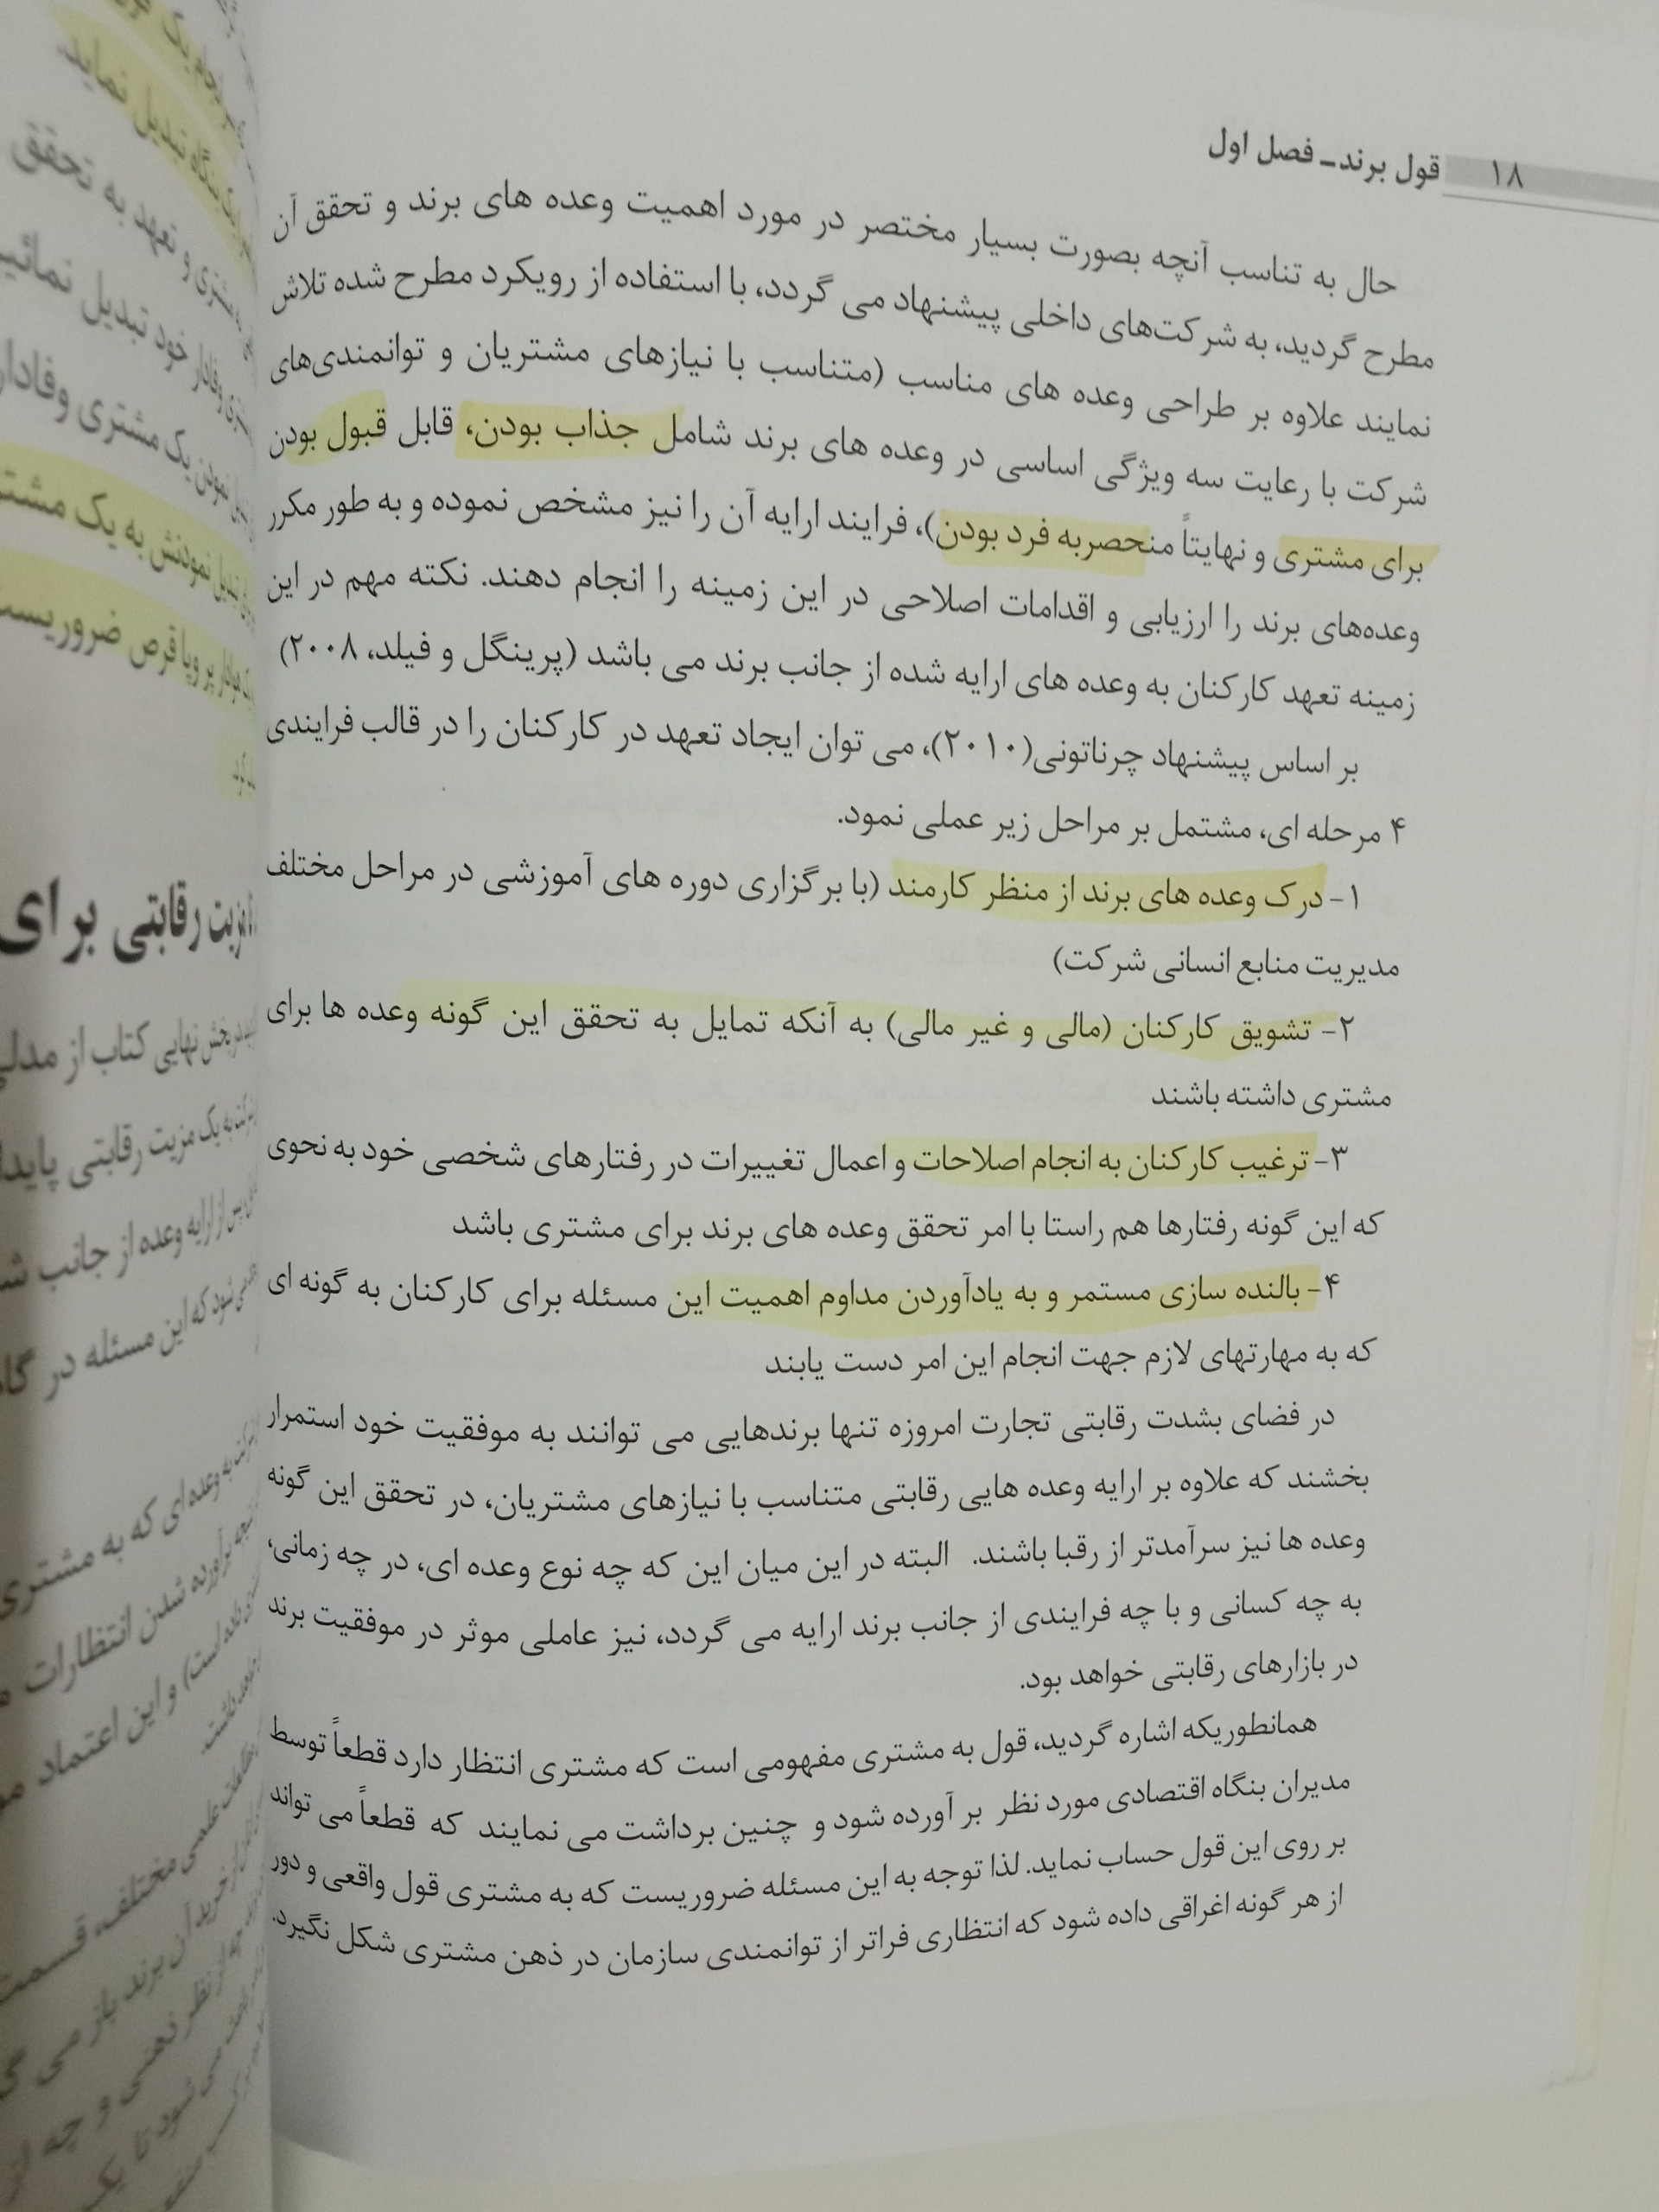 ۱۸ قول برند ـ فصل اول
حال به تناسب آنچه بصورت بسیار مختصر در مورد اهمیت وعده های برند و تحقق آن
مطرح گردید، به شرکت‌های داخلی پیشنهاد می گردد، با استفاده از رویکرد مطرح شده تلاش
نمایند علاوه بر طراحی وعده های مناسب (متناسب با نیازهای مشتریان و توانمندی‌های
شرکت با رعایت سه ویژگی اساسی در وعده های برند شامل جذاب بودن، قابل قبول بودن
برای مشتری و نهایتاً منحصربه فرد بودن)، فرایند ارایه آن را نیز مشخص نموده و به طور مکرر
وعده‌های برند را ارزیابی و اقدامات اصلاحی در این زمینه را انجام دهند. نکته مهم در این
زمینه تعهد کارکنان به وعده های ارایه شده از جانب برند می باشد (پرینگل و فیلد، ۲۰۰۸)
بر اساس پیشنهاد چرناتونی(۲۰۱۰)، می توان ایجاد تعهد در کارکنان را در قالب فرایندی
۴ مرحله ای، مشتمل بر مراحل زیر عملی نمود.
۱- درک وعده های برند از منظر کارمند (با برگزاری دوره های آموزشی در مراحل مختلف
مدیریت منابع انسانی شرکت)
۲- تشویق کارکنان (مالی و غیر مالی) به آنکه تمایل به تحقق این گونه وعده ها برای
مشتری داشته باشند
۳- ترغیب کارکنان به انجام اصلاحات و اعمال تغییرات در رفتارهای شخصی خود به نحوی
که این گونه رفتارها هم راستا با امر تحقق وعده های برند برای مشتری باشد
۴- بالنده سازی مستمر و به یادآوردن مداوم اهمیت این مسئله برای کارکنان به گونه ای
که به مهارتهای لازم جهت انجام این امر دست یابند
در فضای بشدت رقابتی تجارت امروزه تنها برندهایی می توانند به موفقیت خود استمرار
بخشند که علاوه بر ارایه وعده هایی رقابتی متناسب با نیازهای مشتریان، در تحقق این گونه
وعده ها نیز سرآمدتر از رقبا باشند. البته در این میان این که چه نوع وعده ای، در چه زمانی،
به چه کسانی و با چه فرایندی از جانب برند ارایه می گردد، نیز عاملی موثر در موفقیت برند
در بازارهای رقابتی خواهد بود.
همانطوریکه اشاره گردید، قول به مشتری مفهومی است که مشتری انتظار دارد قطعاً توسط
مدیران بنگاه اقتصادی مورد نظر بر آورده شود و چنین برداشت می نمایند که قطعاً می تواند
بر روی این قول حساب نماید. لذا توجه به این مسئله ضروریست که به مشتری قول واقعی و دور
از هر گونه اغراقی داده شود که انتظاری فراتر از توانمندی سازمان در ذهن مشتری شکل نگیرد.
تبدیل نماید
و تعهد به تحقق
وفادار خود تبدیل
نمودن یک مشتری
نمودنش به یک
پا قرص ضروریست
مزیت رقابتی برای
نهایی کتاب از
به یک مزیت رقابتی
پس از ارایه وعده از جانب
شود که این مسئله در
وعده ای که به مشتری
برآورده شدن انتظارات
و این اعتماد
علمی مختلف، قسمت
خرید آن برند باز می
نظر ذهنی و چه
می شود تا یک